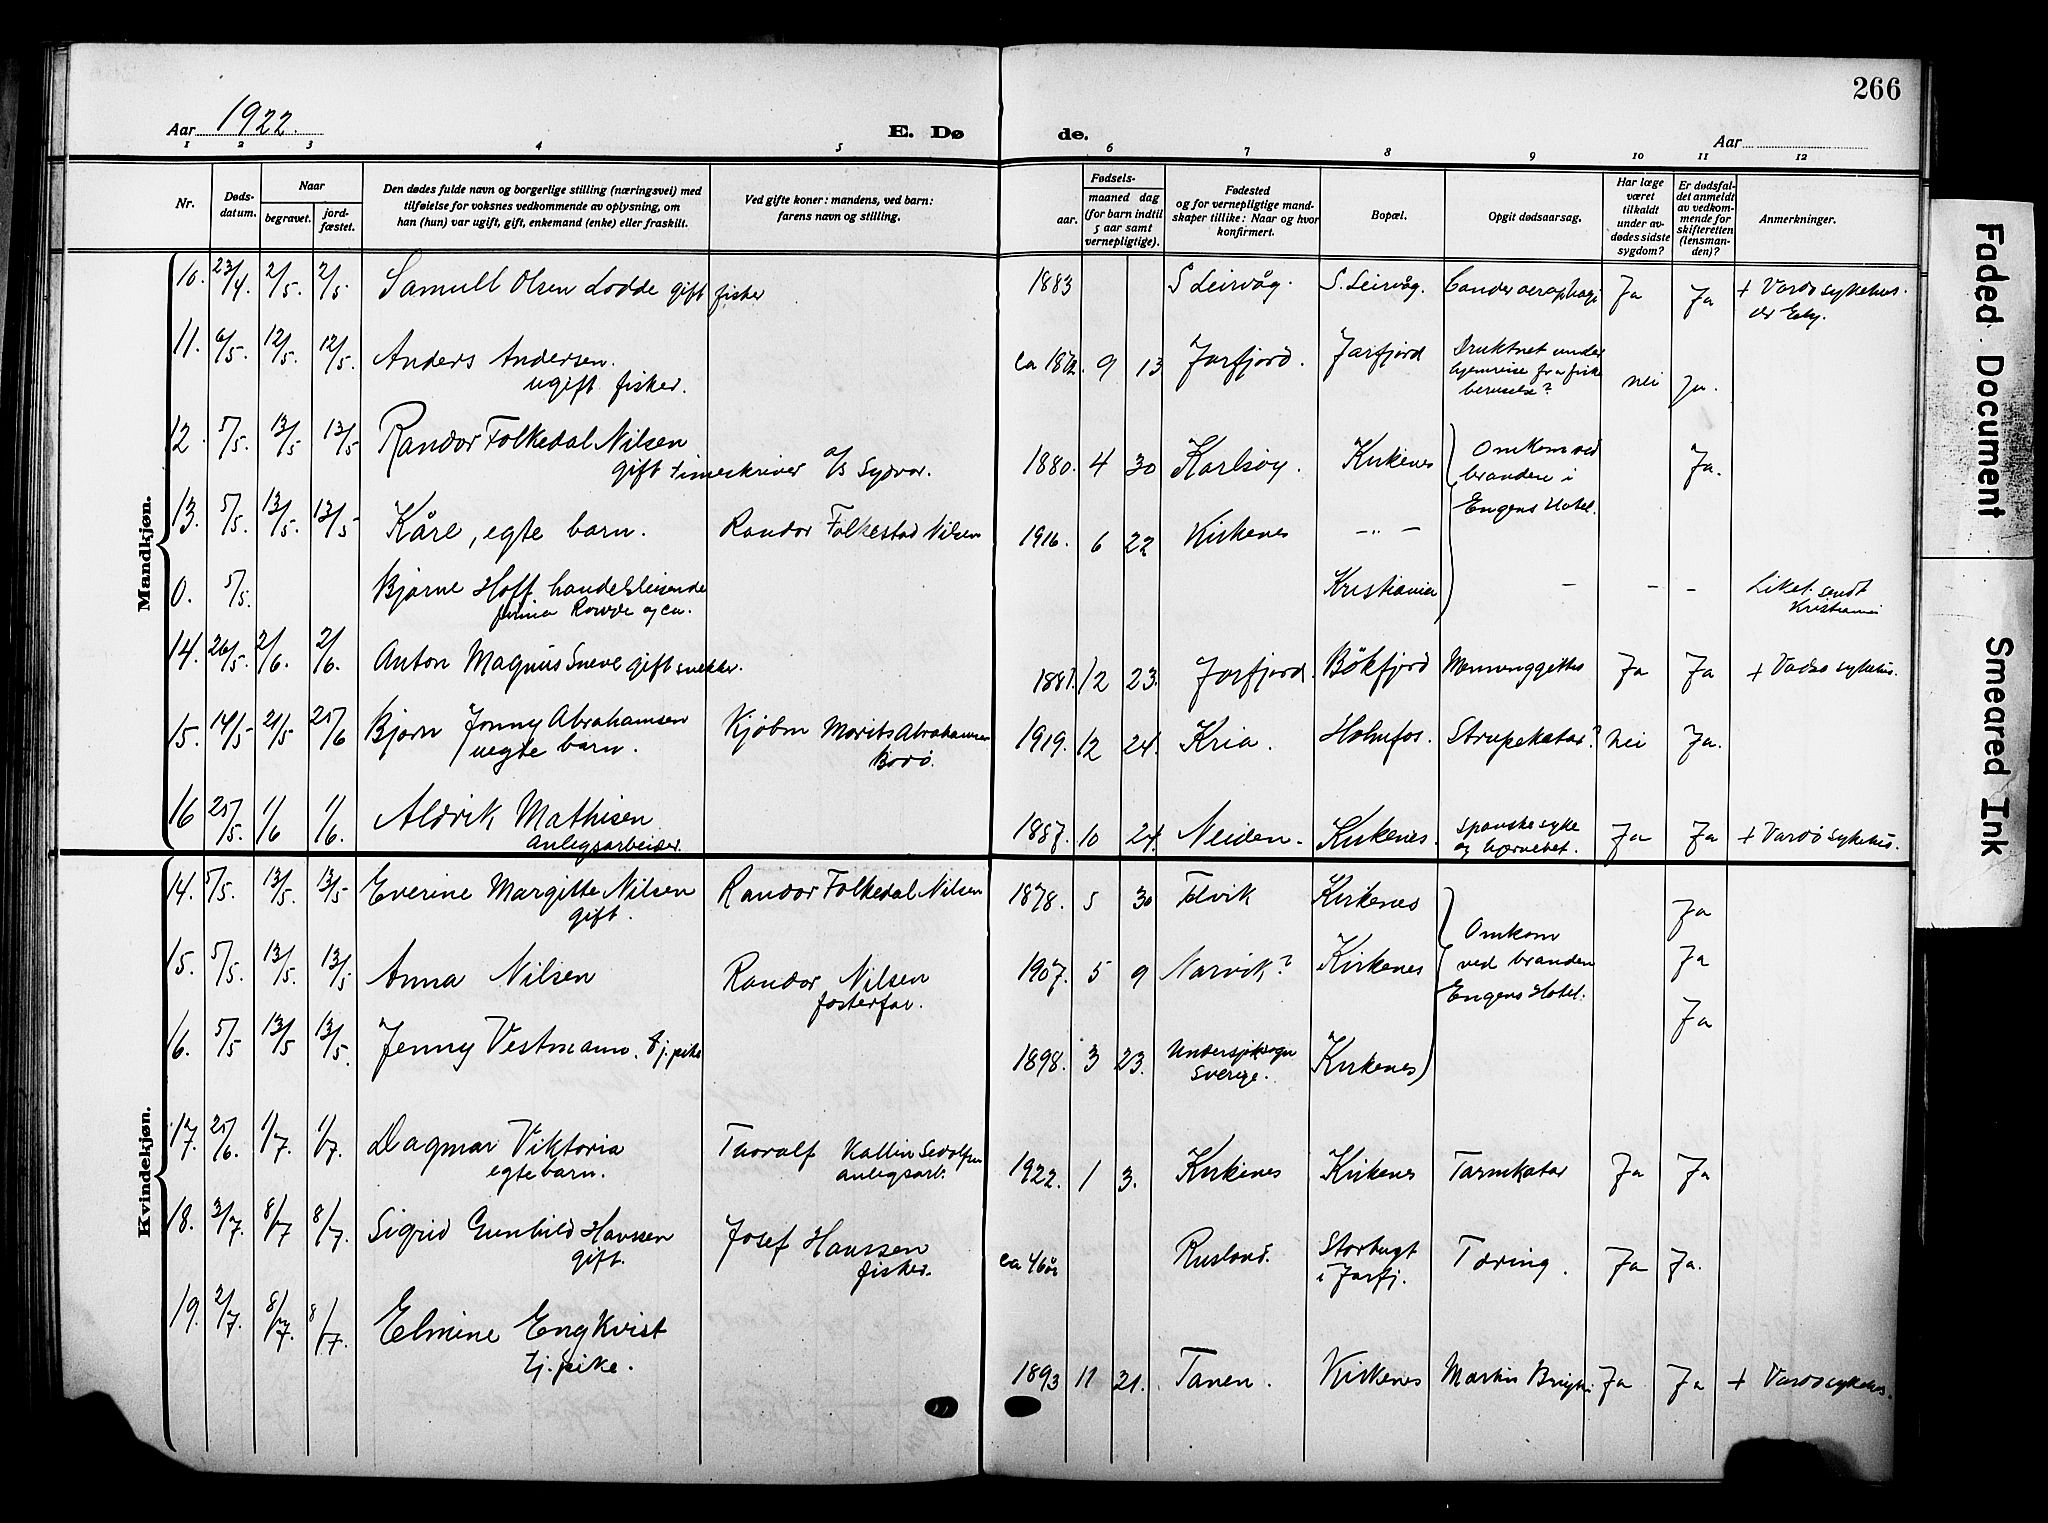 266
Aar 1922.
E. Døde.
Aar
1 2 3 4 5 6 7 8 9 10 11 12
Nr.
Døds-
datum.
Naar
begravet.
jord-
fæstet.
Den dødes fulde navn og borgerlige stilling (næringsvei) med
tilføielse for voksnes vedkommende av oplysning, om
han (hun) var ugift, gift, enkemand (enke) eller fraskilt.
Ved gifte koner: mandens, ved barn:
farens navn og stilling.
Fødsels-
aar. maaned dag
(for barn indtil
5 aar samt
vernepligtige).
Fødested
og for vernepligtige mand-
skaper tillike: Naar og hvor
konfirmert.
Bopæl.
Opgit dødsaarsag.
Har læge
været
tilkaldt
under av-
dødes sidste
sygdom?
Er dødsfal-
det anmeldt
av vedkom-
mende for
skifteretten
(lensman-
den)?
Anmerkninger.
Mandkjøn.
10. 23/4. 2/5. 2/5. Samuel Olsen Lodde gift fisker 1883 S Leirvåg. S. Leirvåg. Ja Ja + Vardø sykehus.
11. 6/5. 12/5. 12/5. Anders Andersen. ca 1872. 9 13 Jarfjord. Jarfjord Druknet under
ugift fisker. hjemreise fra fiske nei Ja.
beruselse?
12. 5/5. 13/5 13/5 Randor Folkedal Nilsen 1880. 4 30 Karlsøy. Kirkenes Omkom ved Ja.
gift timeskriver a/s Sydvar. branden i
Engens Hotel.
13. 5/5. 13/5. 13/5 Kåre, egte barn. Randor Folkestad Nilsen 1916. 6 22 Kirkenes - " -
0. 5/5. Bjarne Hoff handelsreisende Kristiania - - - Liket sendt
firma og co. Kristiania
14. 26/5. 2/6. 2/6. Anton Magnus Sneve gift snekker. 1881. 12 23. Jarfjord. Bökfjord Ja Ja + Vadsø sykehus.
15. 14/5 21/5 25/6 Bjorn Jenny Abrahamsen Kjøbm Morits Abrahamsen 1919. 12 24. Kria. Strupekatar? Nei Ja.
uegte barn. Bodø.
16 25/5. 1/6 1/6. Aldrik Mathisen 1887. 10 24. Neiden. Kirkenes. Spanskesyke Ja Ja + Vardø sykehus.
Anlegsarbeider. og
Kvindekjøn.
14. 5/5. 13/5. 13/5 Everine Margitte Nilsen Randor Folkedal Nilsen 1878. 5 30 Kirkenes Ja
gift. Omkom
15. 5/5. 13/5. 13/5 Anna Nilsen Randor Nilsen 1907. 5 9 Narvik? Kirkenes ved branden Ja
fosterfar. Engens Hotel.
16. 5/5 13/5 13/5. Jenny Vestmann. tj. pike 1898. 3 23. Sverige. Kirkenes Ja
17. 25/6. 1/7. 1/7. Dagmar Viktoria Thoralf 1922. 1 3. Kirkenes Kirkenes Tarmkatar Ja Ja
egte barn. anlegsarb.
18. 3/7. 8/7 8/7. Sigrid Gunhild Hanssen Josef Hanssen ca 46 år Rusland. Storbugt Tæring. Ja Ja.
gift. fisker. i Jarfj.
19. 2/7. 8/7. 8/7. Elmine Engkvist 1893 11 21. Tanen. Kirkenes Ja Ja + Vardø sykehus.
tj. pike.
Faded Document
Smeared Ink